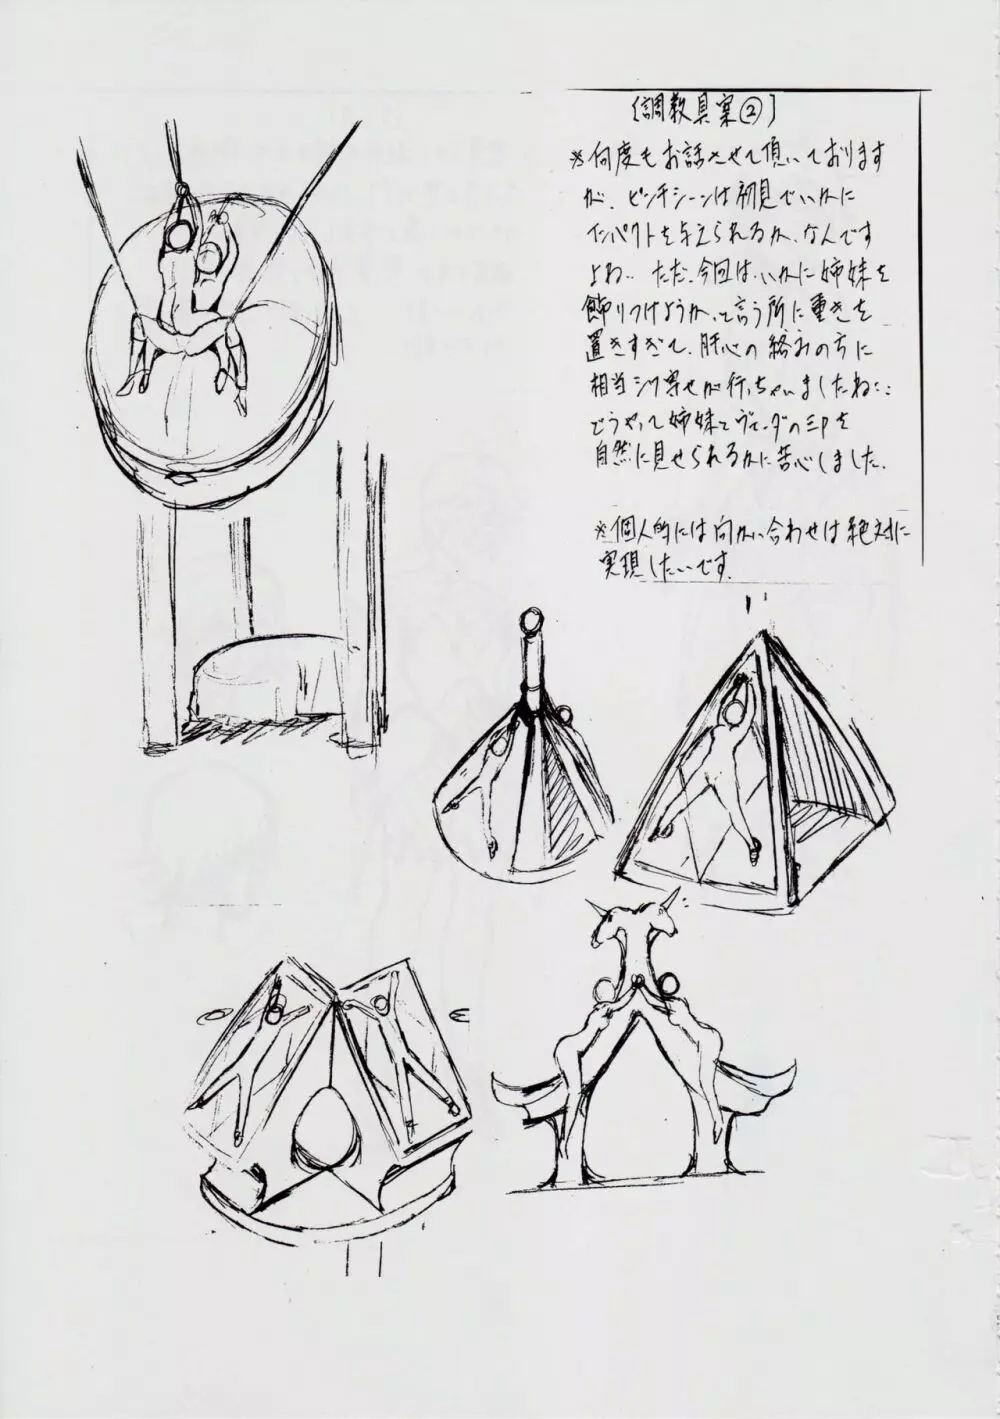 [調教具案②]
※何度もお話させて頂いております
が、ピンチシーンは初見でいかに
インパクトを与えられるか、なんです
よね‥ ただ、今回は、いかに姉妹を
飾りつけようか、って言う所に重きを
置きすぎて、肝心の絡みの方に
相当シワ寄せが行っちゃいましたね‥
どうやって姉妹とヴェーダの三Pを
自然に見せられるかに苦心しました。
※個人的には向かい合わせは絶対に
実現したいです。